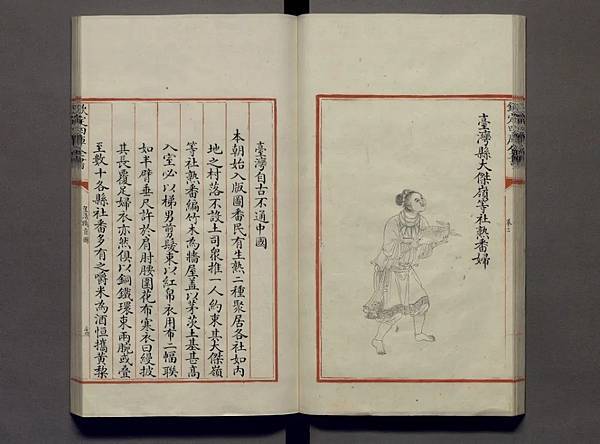 臺灣縣大傑嶺等社熟番婦
臺灣自古不通中國
本朝始入版圖番民有生熟二種聚居各社如內
地之村落不設土司衆推一人約束其大傑嶺
等社熟番編竹木為牆屋蓋以茅茨土基甚高
入室必以梯男剪髮束以紅帛衣用布二幅聯
如半臂垂尺許於肩肘腰圍花布寒衣曰縵披
其長覆足婦衣亦然俱以銅鐵環束兩腕或疊
至數十各縣社番多有之嚼米為酒恒攜黃棃
欽定四庫全書
皇清職貢圖